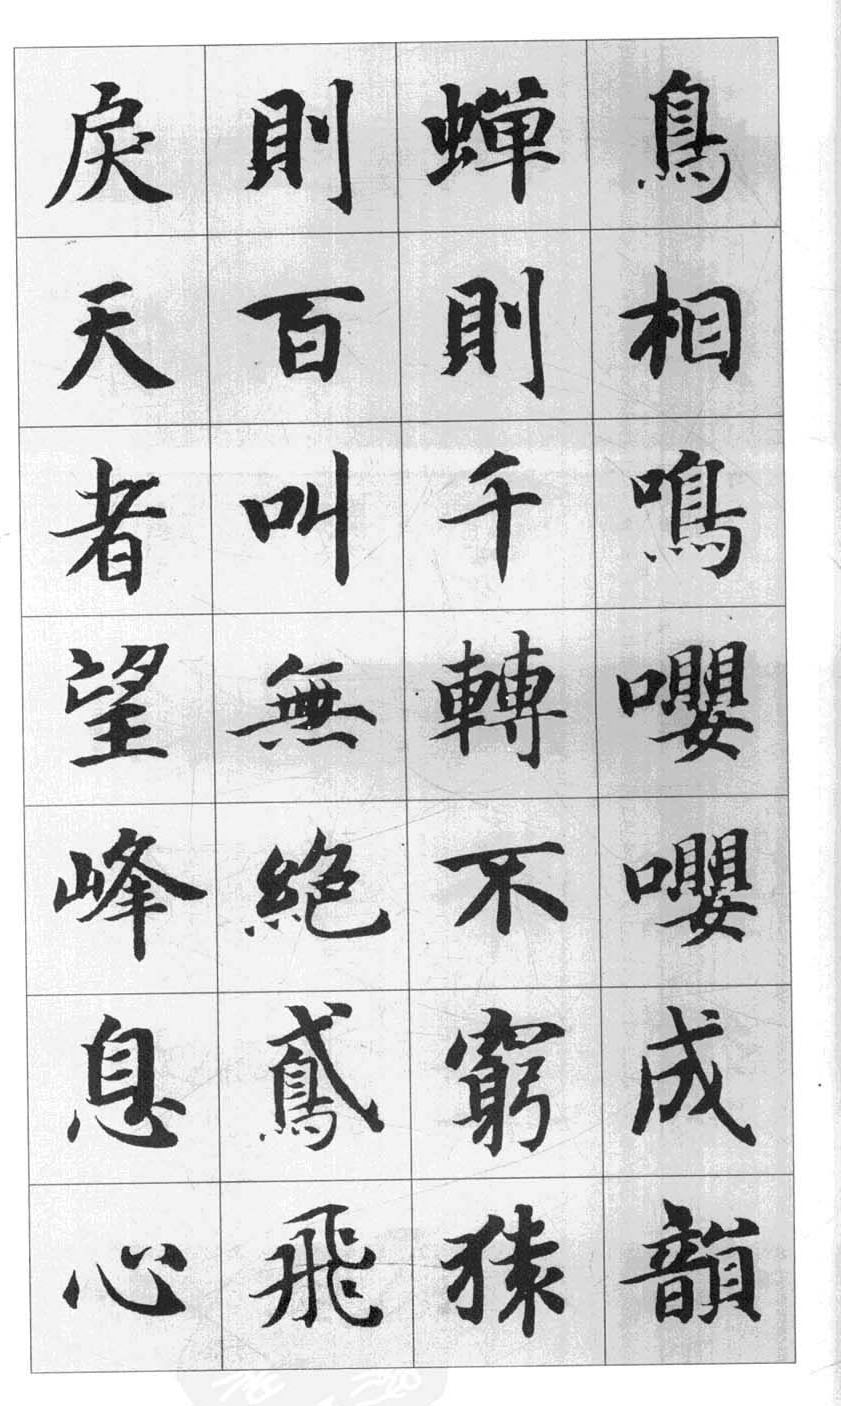 鳥相鳴嚶嚶成韻
蟬則千轉不窮猿
則百叫無絕鳶飛
戾天者望峰息心